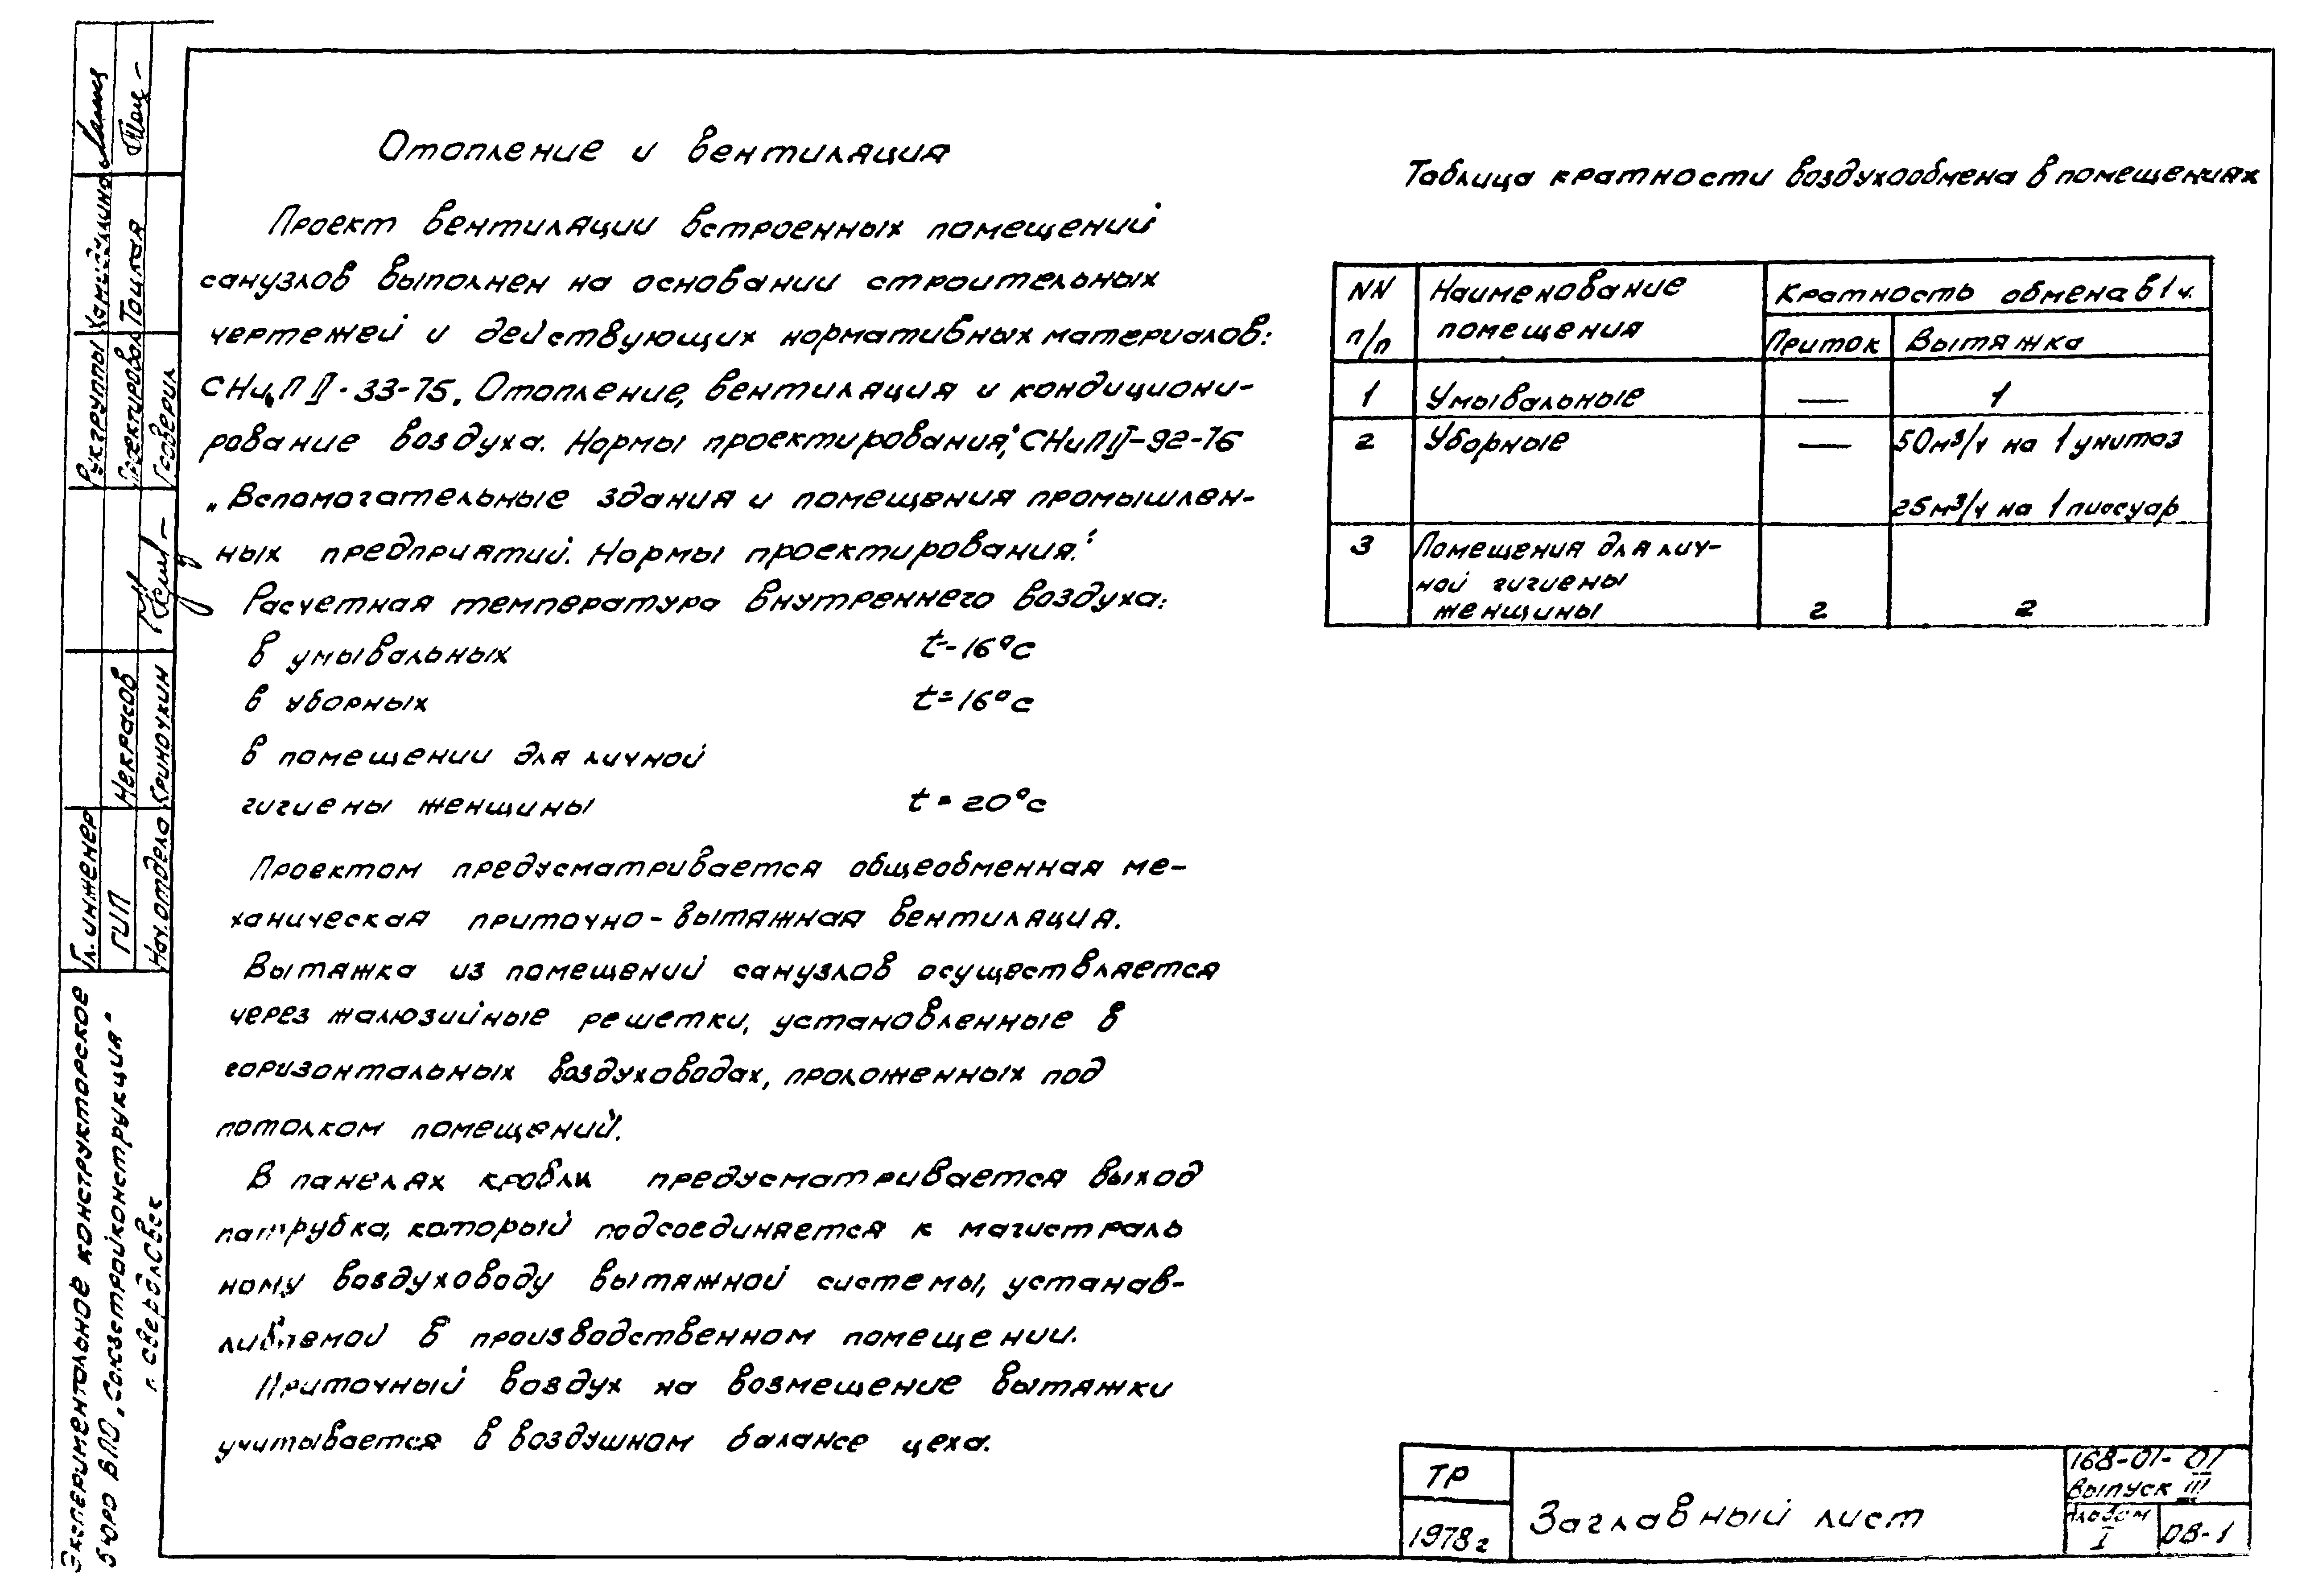 Отопление и вентиляция
Проект вентиляции встроенных помещений
санузлов выполнен на основании строительных
чертежей и действующих нормативных материалов:
СНиП II-33-75. Отопление, вентиляция и кондициони-
рование воздуха. Нормы проектирования", СНиП II-92-76
„Вспомогательные здания и помещения промышлен-
ных предприятий. Нормы проектирования."
Расчетная температура внутреннего воздуха:
в умывальных t=16°C
в уборных t=16°C
в помещении для личной
гигиены женщины t=20°C
Проектом предусматривается общеобменная ме-
ханическая приточно-вытяжная вентиляция.
Вытяжка из помещений санузлов осуществляется
через жалюзийные решетки, установленные в
горизонтальных воздуховодах, проложенных под
потолком помещений.
В панелях кровли предусматривается выход
патрубка, который подсоединяется к магистраль
ному воздуховоду вытяжной системы, устанав-
ливаемой в производственном помещении.
Приточный воздух на возмещение вытяжки
учитывается в воздушном балансе цеха.
Таблица кратности воздухообмена в помещениях
NN п/п
Наименование помещения
Кратность обмена в 1 ч.
Приток Вытяжка
1 Умывальные — 1
2 Уборные — 50м³/ч на 1 унитаз
25м³/ч на 1 писсуар
3 Помещения для лич-
ной гигиены
женщины 2 2
ТР
1978г
Заглавный лист
168-01-01
выпуск III
Альбом
I
ОВ-1
Рук.группы
Проектировал Тоцкая
Проверил
Гл. инженер
ГИП Некрасов
Нач. отдела Криночкин
Экспериментальное конструкторское
бюро ВПО „Союзстройконструкция"
г. Свердловск